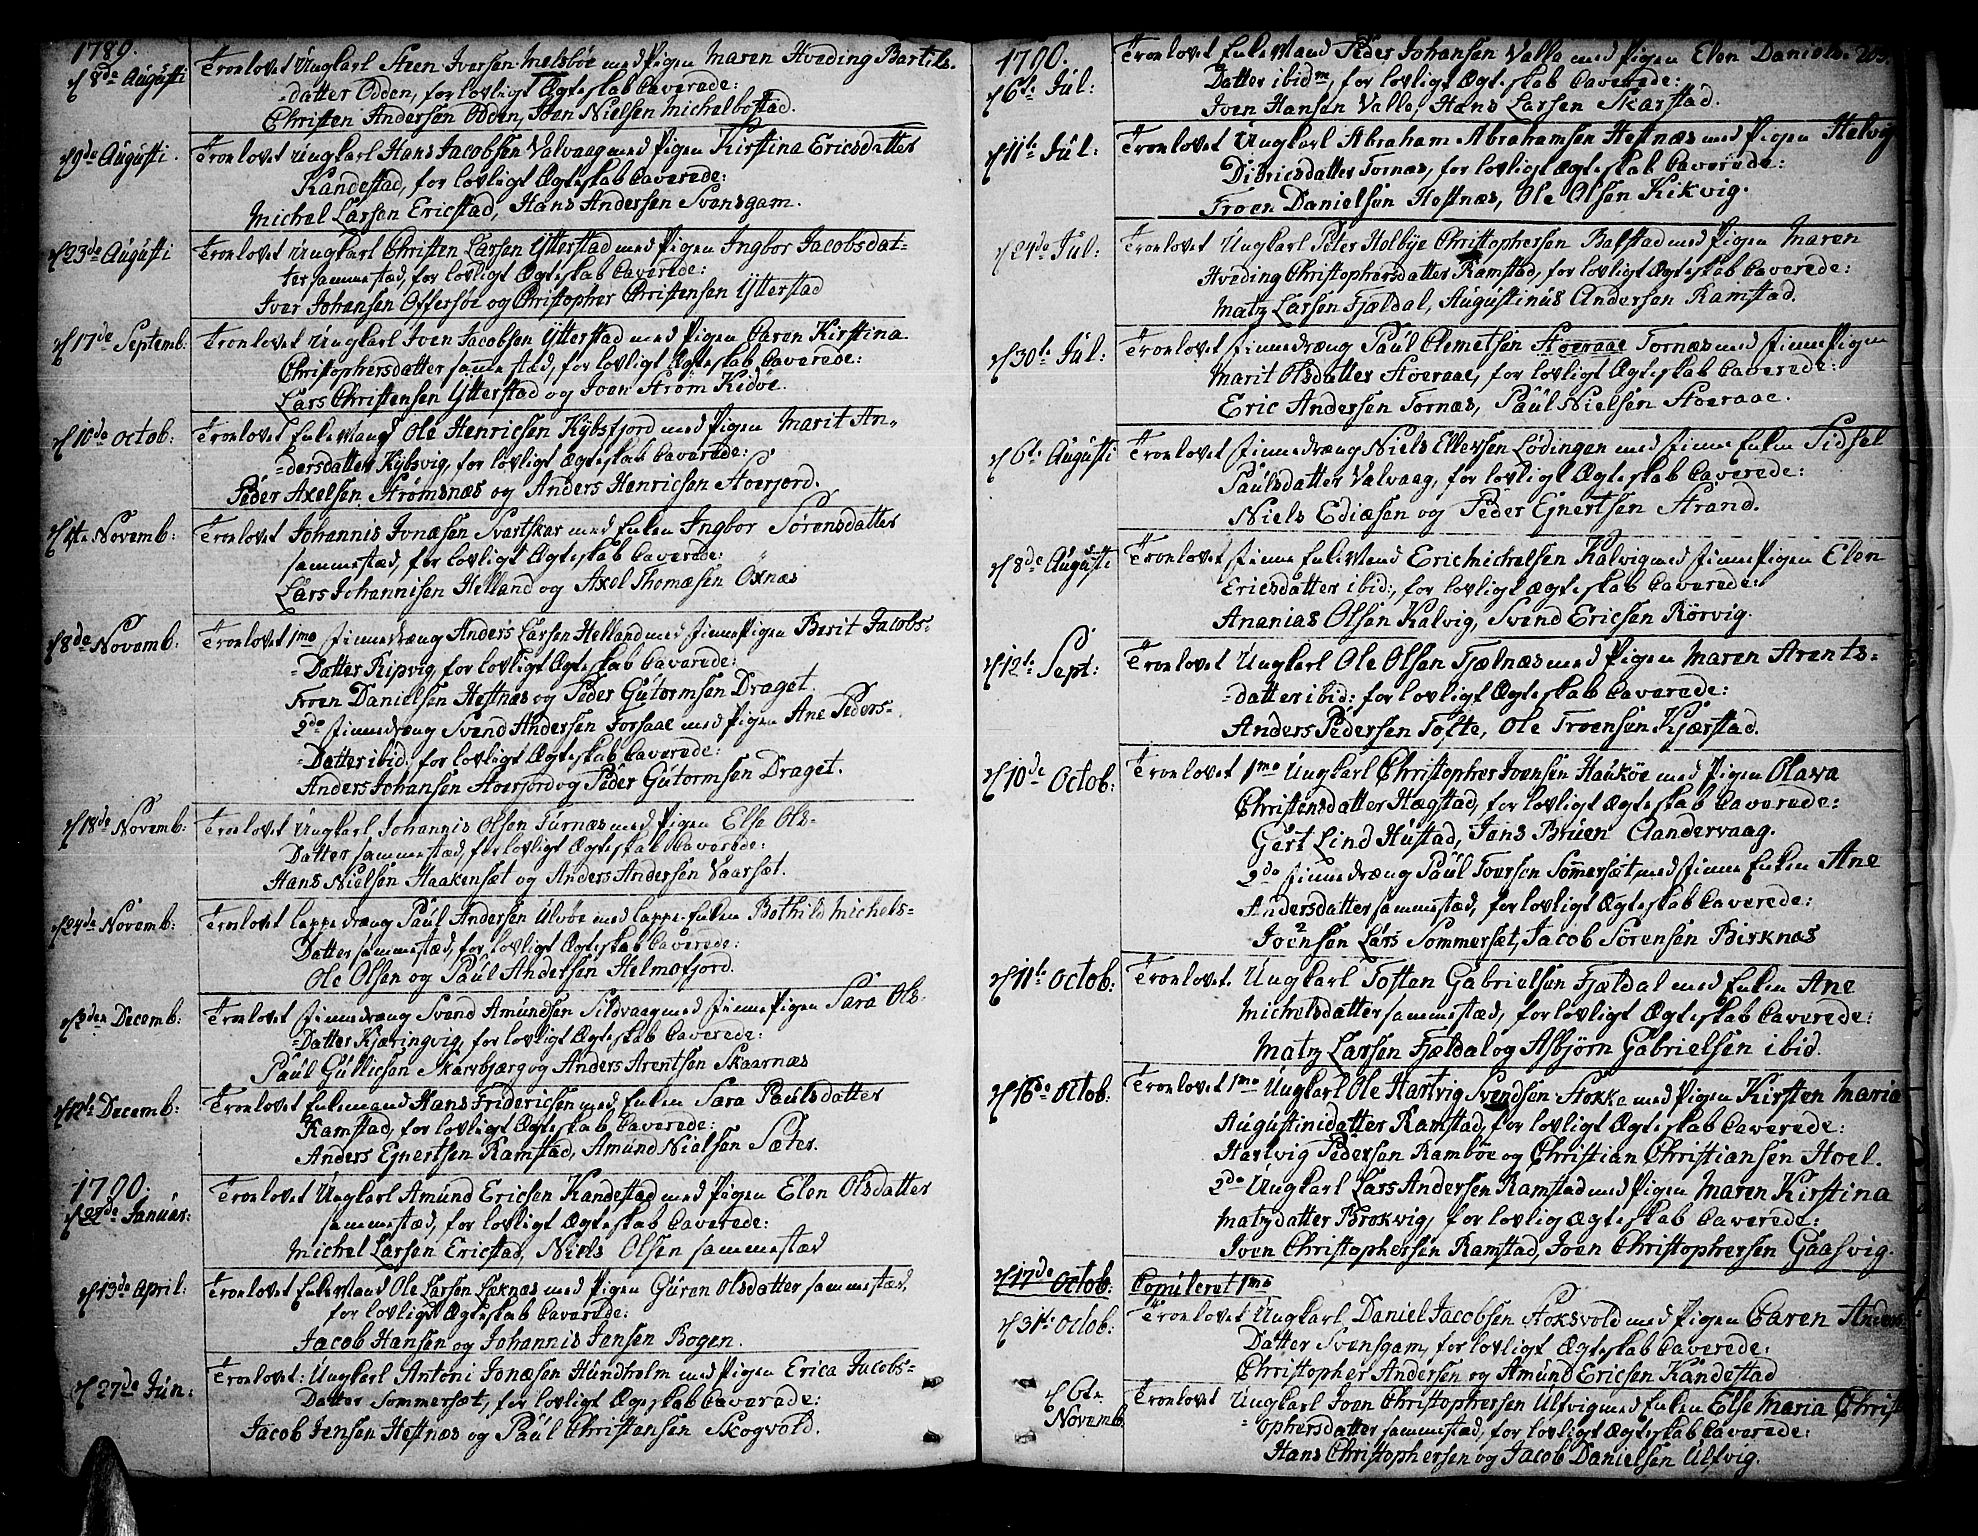 1789.
d 8de Augusti Troelovet Ungkarl Steen Iversen Melsbøe med Pigen Maren Hveding Bartils-
=datter Odden, for lovligt Ægteskab Caverede:
Christen Andersen Odden, Joen Nielsen Michelbostad.
d 9de Augusti. Troelovet Ungkarl Hans Jacobsen Valvaag med Pigen Kirstina Ericsdatter
Kandestad, for lovligt Ægteskab Caverede:
Michel Larsen Ericstad, Hans Andersen Svensgam.
d 23de Augusti Troelovet Ungkarl Christen Larsen Ytterstad med Pigen Ingbor Jacobsdat-
ter sammestæd, for lovligt Ægteskab Caverede:
Iver Johansen Offersøe og Christopher Christensen Ytterstad
d 17de Septemb: Troelovet Ungkarl Joen Jacobsen Ytterstad med Pigen Caren Kirstina
Christophersdatter samestæd, for lovligt Ægteskab Caverede:
Lars Christensen Ytterstad og Joen Strøm Kidøe.
d 10de Octob: Troelovet Enkemand Ole Henricsen Kybsfjord med Pigen Marit An-
=dersdatter Kybsvig, for lovligt Ægteskab Caverede:
Peder Axelsen Strømsnæs og Anders Henricsen Stoerjord.
d 1te Novemb: Troelovet Johannis Jonæsen Svartskar med Enken Ingbor Sørensdatter
sammestæd, for lovligt Ægteskab Caverede:
Lars Johannisen Helland og Axel Thomæsen Oxnæs
d 8de Novemb: Troelovet 1mo Finnedræng Anders Larsen Helland med FinnePigen Berit Jacobs-
=Datter Ripvig, for lovligt Ægteskab Caverede:
Troen Danielsen Hestnæs og Peder Gutormsen Draget
2do Finnedræng Svend Andersen Forsaae med Pigen Ane Peders-
=Datter ibid, for lovligt Ægteskab Caverede:
Anders Johansen Stoerjord og Peder Gutormsen Draget.
d 18de Novemb: Troelovet Ungkarl Johannis Olsen Turnæs med Pigen Else Ols-
Datter sammestæd, for lovligt Ægteskab Caverede:
Hans Nielsen Haakensæt og Anders Andersen Vaarsæt.
d 24de Novemb: Troelovet Lappedræng Paul Andersen Ulvøe med Lappe-Enken Bothild Michels-
Datter sammestæd, for lovligt Ægteskab Caverede:
Ole Olsen og Paul Andersen Helmofjord.
d 3den Decemb: Troelovet Finnedræng Svend Amundsen Sildvaag med FinnePigen Sara Ols-
=Datter Kjæringvig, for lovligt Ægteskab Caverede:
Paul Gullicsen Skarvbjærg og Anders Arentsen Skaarnæs
d 12te Decemb: Troelovet Enkemand Hans Fridericsen med Enken Sara Paulsdatter
Ramstad, for lovligt Ægteskab Caverede:
Anders Ejnertsen Ramstad, Amund Nielsen Sæter.
1790.
d 22de Januar: Troelovet Ungkarl Amund Ericsen Kandestad med Pigen Elen Olsdatter
sammestæd, for lovligt Ægteskab Caverede:
Michel Larsen Ericstad, Niels Olsen sammestæd
d 13de April: Troelovet EnkeMand Ole Larsen Læknæs med Pigen Guren Olsdatter sammestæd,
for lovligt Ægteskab Caverede:
Jacob Hansen og Johannis Jansen Bogen.
d 27de Jun: Troelovet: Ungkarl Antoni Jonæsen Hundholm med Pigen Erica Jacobs-
Datter Sommersæt, for lovligt Ægteskab Caverede:
Jacob Jensen Hestnæs og Paul Christensen Skogvold.
1790. 203.
d 6te Jul: Troelovet EnkeMand Peder Johansen Valle med Pigen Elen Daniels-
Datter ibidm, for lovligt Ægteskab Caverede:
Joen Hansen Valle, Hans Larsen Skarstad.
d 11te Jul: Troelovet Ungkarl Abraham Abrahamsen Hestnæs med Pigen Helvig
Didricsdatter Tornæs, for lovligt Ægteskab Caverede:
Troen Danielsen Hestnæs, Ole Olsen Kikvig.
d 24de Jul: Troelovet Ungkarl Peter Holbye Christophersen Balstad med Pigen Maren
Hveding Christophersdatter Ramstad, for lovligt Ægteskab Caverede:
Matz Larsen Fjældal, Augustinus Andersen Ramstad.
d 30te Jul: Troelovet Finnedræng Paul Clemetsen Stoeraae Tornæs med FinnePigen
Marit Olsdatter Stoeraae, for lovligt Ægteskab Caverede:
Eric Andersen Tornæs, Paul Nielsen Stoeraae.
d 6te Augusti Troelovet Finnedræng Niels Ellersen Lødingen med Finne Enken Sidsel
Paulsdatter Valvaag, for lovligt Ægteskab Caverede:
Niels Ediæsen og Peder Ejnertsen Strand.
d 8de Augusti Troelovet Finne EnkeMand Eric Michelsen Kalvig med FinnePigen Elen
Ericsdatter ibid:, for lovligt Ægteskab Caverede:
Ananias Olsen Kalvig, Svend Ericsen Rørvig.
d 12te Sept: Troelovet Ungkarl Ole Olsen Fjelnæs med Pigen Maren Arents-
=datter ibid: for lovligt Ægteskab Caverede:
Anders Pedersen Tofte, Ole Troensen Kjærstad.
d 10de Octob: Troelovet 1mo Ungkarl Christopher Joensen Haukøe med Pigen Olava
Christensdatter Hægstad, for lovligt Ægteskab Caverede:
Gert Lind Hustad, Jans Bruen Clandervaag.
2do Finnedræng Paul Joersen Somersæt, med Finne Enken Ane
Andersdatter sammestæd, for lovligt Ægteskab Caverede:
Joensen Lars Sommersæt, Jacob Sørensen Birknæs
d 11te Octob: Troelovet. Ungkarl Tosten Gabrielsen Fjældal med Enken Ane
Michelsdatter sammestæd, for lovligt Ægteskab Caverede:
Matz Larsen Fjældal og Asbjørn Gabrielsen ibid.
d 16de Octob: Troelovet 1mo Ungkarl Ole Hartvig Svendsen Stokke med Pigen Kirsten Maria
Augustinidatter Ramstad, for lovligt Ægteskab Caverede:
Hartvig Pedersen Rambøe og Christian Christiansen Hoel.
2do Ungkarl Lars Andersen Ramstad med Pigen Maren Kirstina
Matzdatter Brokvig, for lovligt Ægteskab Caverede:
Joen Christophersen Ramstad, Joen Christophersen Gaasvig.
d 17de Octob: Copuleret 1mo
d 31te Octob: Troelovet Ungkarl Daniel Jacobsen Stoksvold med Pigen Caren Anders
Datter Svensgam, for lovligt Ægteskab Caverede:
Christopher Andersen og Amund Ericsen Kandestad
d 6te Novemb Troelovet Ungkarl Joen Christophersen Ulfvig med Enken Else Maria Christ
=ophersdatter sammestæd, for lovligt Ægteskab Caverede:
Hans Christophersen og Jacob Danielsen Ulfvig.